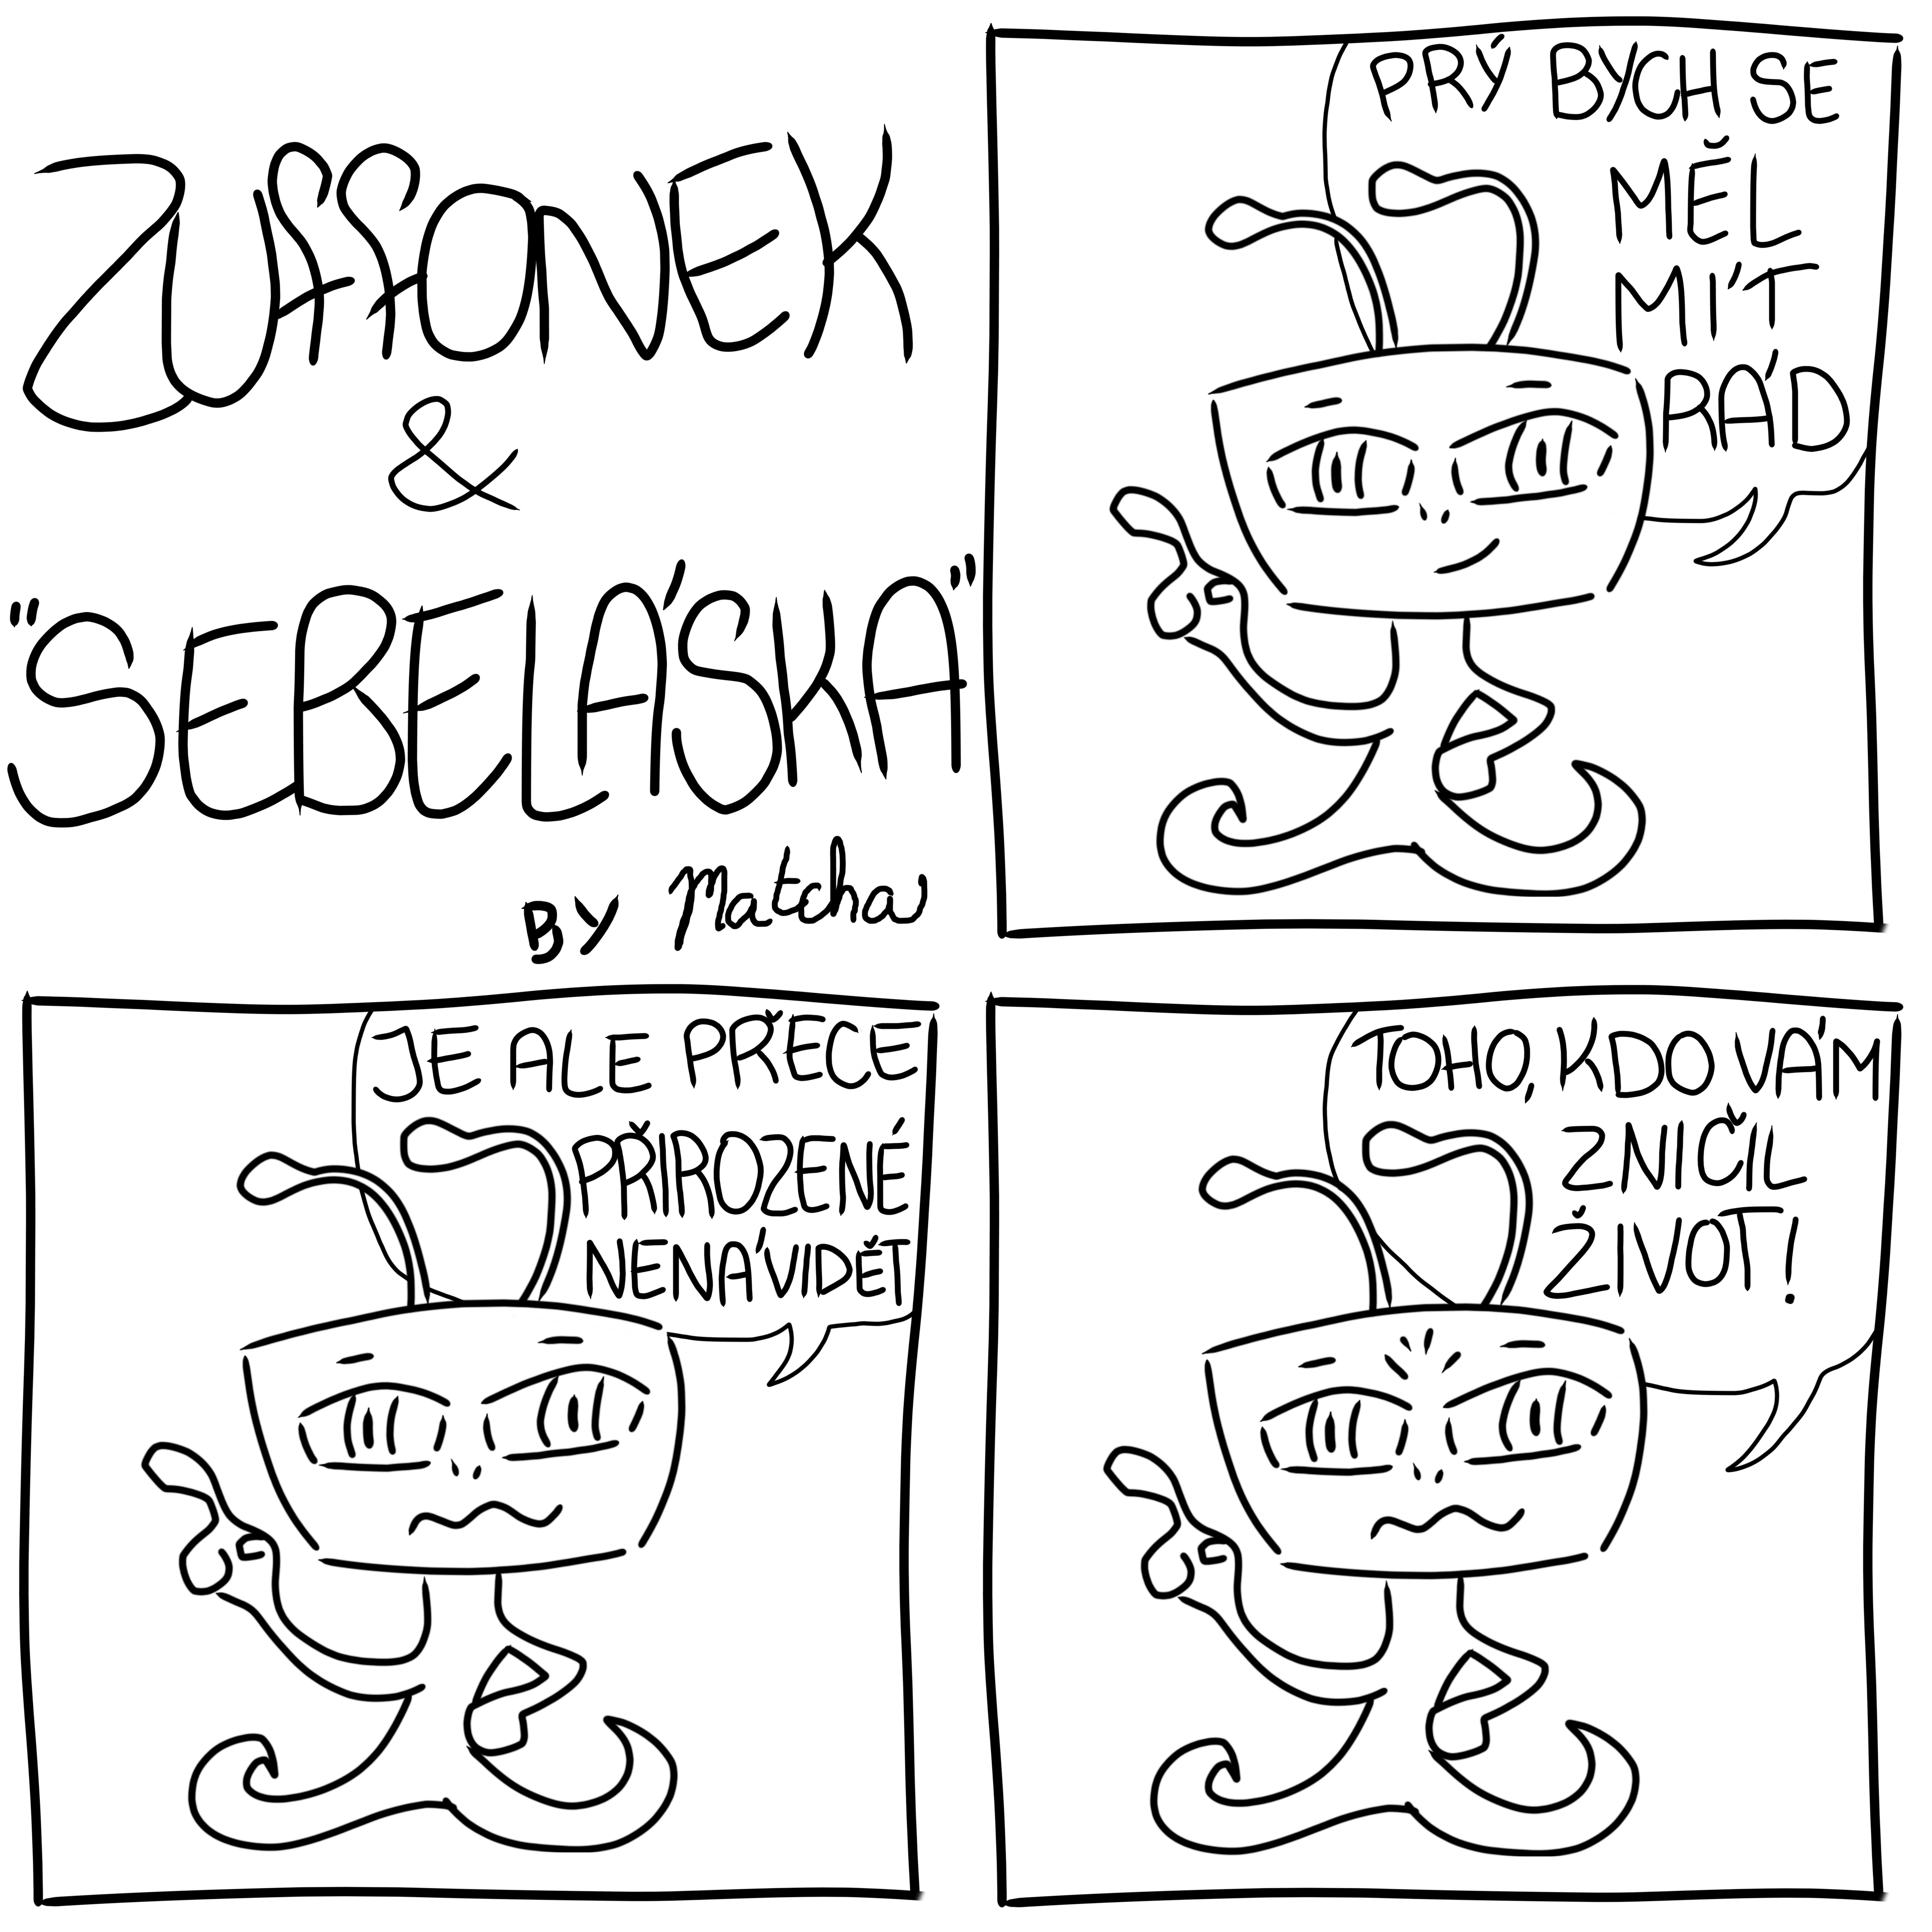 ZUFFANEK
&
"SEBELÁSKA"
BY Matcha
PRÝ BYCH SE
MĚL
MÍT
RÁD
JE ALE PŘECE
PŘIROZENÉ
NENÁVIDĚT
TOHO, KDO VÁM
ZNIČIL
ŽIVOT!